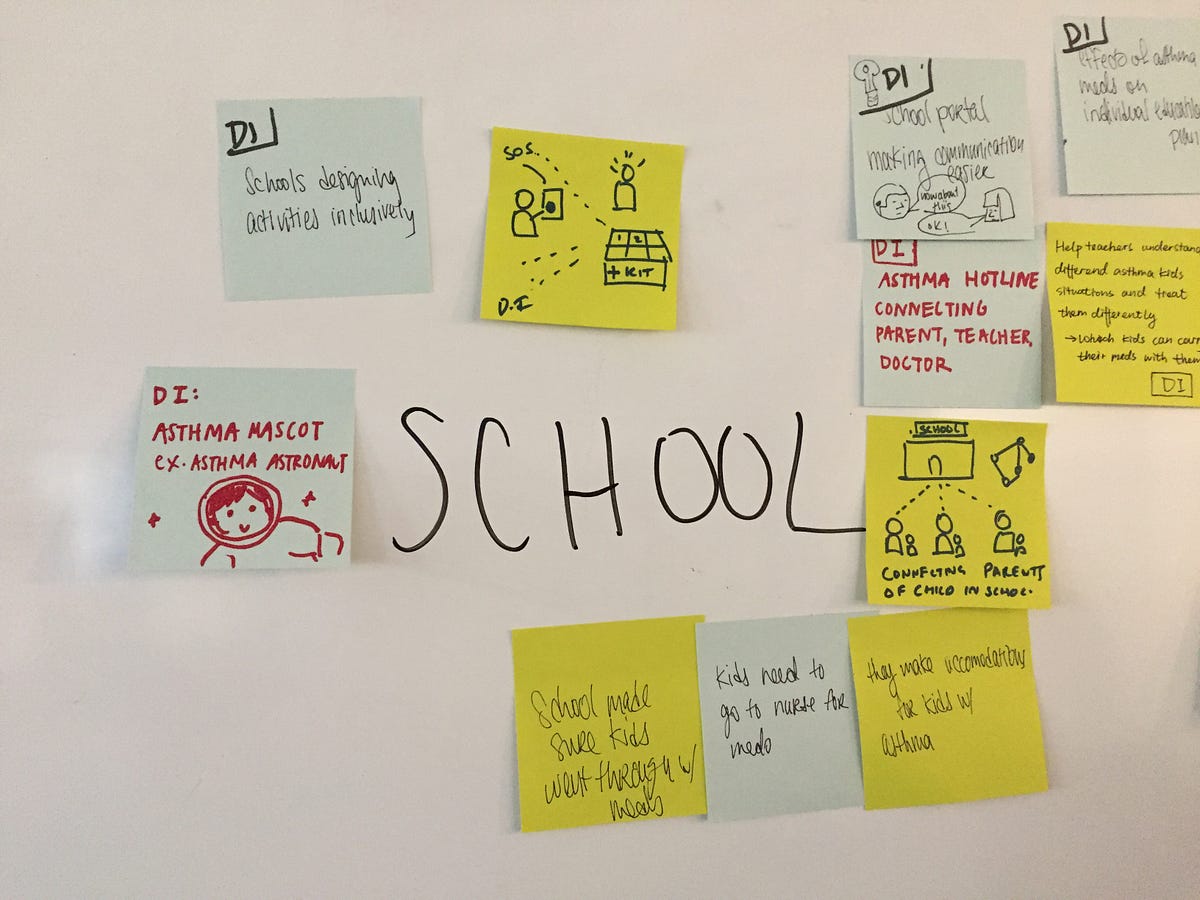 DI
Schools designing
activities inclusively
SOS..
1 2
+ KIT
D.I
DI
School portal
making communication
easier
how about
this
OK!
DI
effects of asthma
meds on
individual
plan
DI
ASTHMA HOTLINE
CONNECTING
PARENT, TEACHER,
DOCTOR
Help teachers understand
differend asthma kids
situations and treat
them differently
→ which kids can
their meds with them
DI
DI:
ASTHMA MASCOT
ex. ASTHMA ASTRONAUT
SCHOOL
SCHOOL
CONNECTING PARENTS
OF CHILD IN SCHOOL.
School made
sure kids
went through w/
meds
kids need to
go to nurse for
meds
they make accomodations
for kids w/
asthma